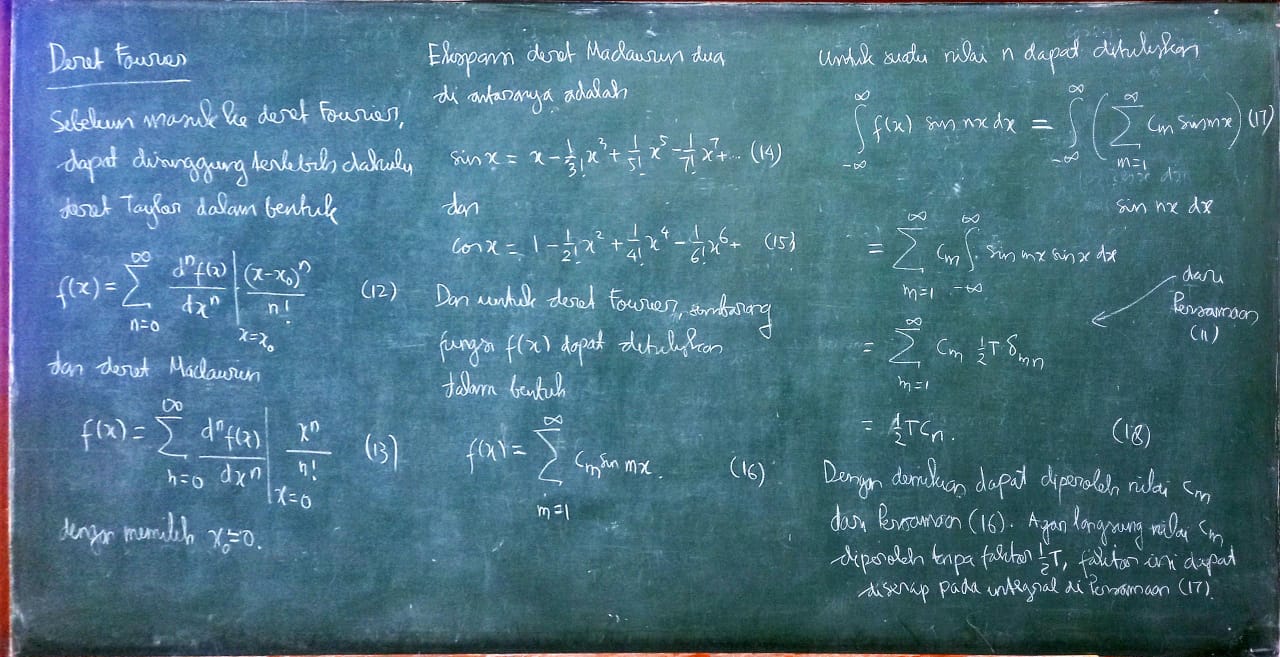 Deret Fourier
Sebelum masuk ke deret Fourier,
dapat disinggung terlebih dahulu
deret Taylor dalam bentuk
f(x) = ∑_{n=0}^{∞} d^n f(x)/dx^n |_{x=x₀} (x-x₀)^n/n! (12)
dan deret Maclaurin
f(x) = ∑_{n=0}^{∞} d^n f(x)/dx^n |_{x=0} x^n/n! (13)
dengan memilih x₀=0.
Ekspansi deret Maclaurin dua
di antaranya adalah
sin x = x - 1/3! x³ + 1/5! x⁵ - 1/7! x⁷+... (14)
dan
cos x = 1 - 1/2! x² + 1/4! x⁴ - 1/6! x⁶+ (15)
Dan untuk deret Fourier, sembarang
fungsi f(x) dapat dituliskan
dalam bentuk
f(x) = ∑_{m=1}^{∞} c_m sin mx. (16)
Untuk suatu nilai n dapat dituliskan
∫_{-∞}^{∞} f(x) sin nx dx = ∫_{-∞}^{∞} (∑_{m=1}^{∞} c_m sin mx) (17)
sin nx dx
= ∑_{m=1}^{∞} c_m ∫_{-∞}^{∞} sin mx sin x dx
dari
Persamaan
(11)
= ∑_{m=1}^{∞} c_m ½T δ_{mn}
= ½TC_n. (18)
Dengan demikian dapat diperoleh nilai c_m
dari Persamaan (16). Agar langsung nilai c_m
diperoleh tanpa faktor ½T, faktor ini dapat
diserap pada integral di Persamaan (17).